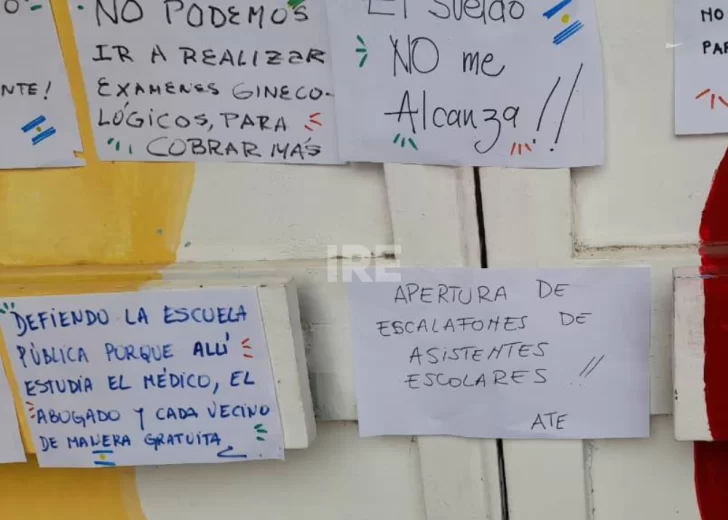 NTE!
NO PODEMOS
IR A REALIZAR
EXAMENES GINECO-
LÓGICOS, PARA
COBRAR MÁS
El sueldo
NO me
Alcanza!!
NO
PAR
IRE
DEFIENDO LA ESCUELA
PÚBLICA PORQUE ALLÍ
ESTUDIA EL MÉDICO, EL
ABOGADO Y CADA VECINO
DE MANERA GRATUITA
APERTURA DE
ESCALAFONES DE
ASISTENTES
ESCOLARES !!
ATE